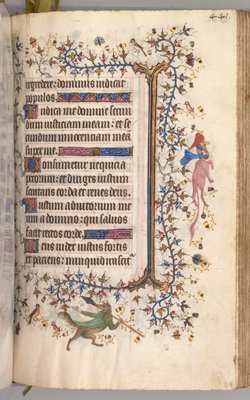 441
regredere: dominus iudicat
populos.
Iudica me domine secun
dum iusticiam meam: et se
cundum innocenciam meā
super me.
Consumetur nequicia
pctorum: et diriges iustum
scrutans corda et renes deus.
Iustum adiutorium me
um a domino: qui saluos
facit rectos corde.
Deus iudex iustus fortis
et paciens: nunquid irascit᷑